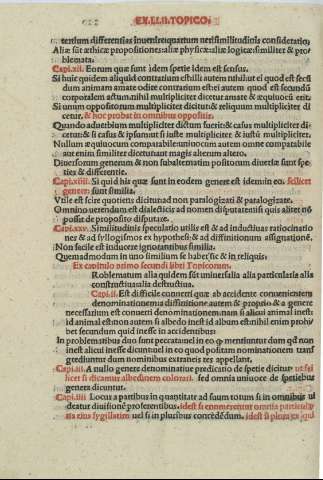 EX.LI.II.TOPICO.
tertium differentias inuenire quartum uerisimilitudinis consideratio.
Aliæ sūt æthicæ propositiones: aliæ physicæ: aliæ logicæ similiter & pro
blemata.
Capi.xii. Eorum quæ sunt idem spetie idem est sensus.
Si huic quidem aliquid contrarium est illi autem nihil ut ei quod est secū
dum animam amare odire contrarium est ei autem quod est secundū
corporalem actum. nihil multipliciter dicitur amare & æquiuocū erit
Si unum oppositorum multipliciter dicitur & reliquum multipliciter di
cetur. & hoc probat in omnibus oppositis.
Quando aduerbium multipliciter dictum fuerit: & casus multipliciter di
cetur: & si casus & ipsum ut si iuste multipliciter & iustū multipliciter.
Nullum æquiuocum comparabile: uniuocum autem omne comparabile
aut enim similiter dicitur aut magis alterum altero.
Diuersorum generum & non subalternatim positorum diuersæ sunt spe
ties & differentiæ.
Capi.xiiii. Si quid his quæ sunt in eodem genere est idem in eo. scilicet
genere: sunt similia.
Vtile est scire quotiens dicitur ad non paralogizati & paralogizare.
Omnino uerendum est dialecticis ad nomen disputare nisi quis aliter nō
possit de proposito disputare.
Capi.xxv. Similitudinis speculatio utilis est & ad inductiuas ratiocinatio
nes & ad syllogismos ex hypothesi & ad diffinitionum assignationē.
Non facile est inducere ignorantibus similia.
Quemadmodum in uno similium se habet sic & in reliquis.
Ex capitulo primo secundi libri Topicorum.
Roblematum alia quidem sūt uniuersalia alia particularia alia
constructiua alia destructiua.
Capi.ii. Est difficile conuerti quæ ab accidente conuenientem
denominationem a diffinitione autem & proprio & a genere
necessarium est conuerti denominationem nam si alicui animal inest
id animal est non autem si albedo inest id album est nihil enim prohi
bet secundum quid inesse in accidentibus
In problematibus duo sunt peccata uel in eo q mentiuntur dum qd non
inest alicui inesse dicunt uel in eo quod positam nominationem trans
grediuntur dum nominibus extraneis res appellant.
Capi.iii. A nullo genere denominatiue predicatio de spetie dicitur ut sci
licet si dicamus albedinem colorari. sed omnia uniuoce de spetiebus
genera dicuntur.
Capi.iiii Locus a partibus in quantitate ad suum totum si in omnibus ui
deatur diuisionē proferentibus. idest si enumerentur omnia particula
ria eius sygillatim uel si in pluribus concededum. idest si plura ex qui